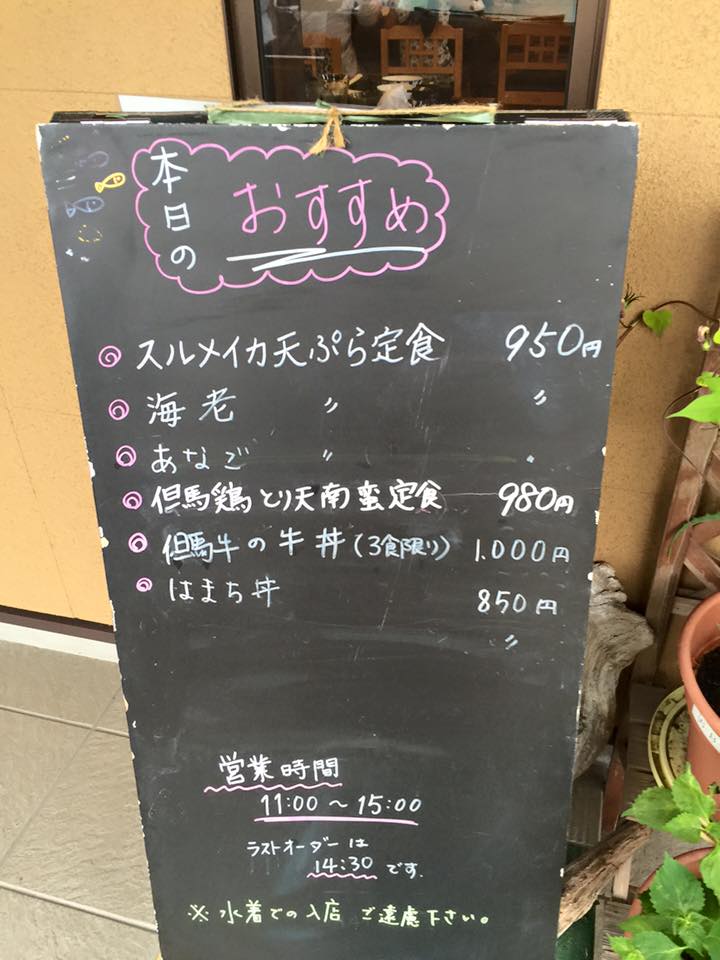 本日の
おすすめ
スルメイカ天ぷら定食 950円
海老 〃 〃
あなご 〃 〃
但馬鶏とり天南蛮定食 980円
但馬牛の牛丼(3食限り) 1.000円
はまち丼 850円
〃
営業時間
11:00～15:00
ラストオーダーは
14:30です.
※ 水着での入店 ご遠慮下さい。